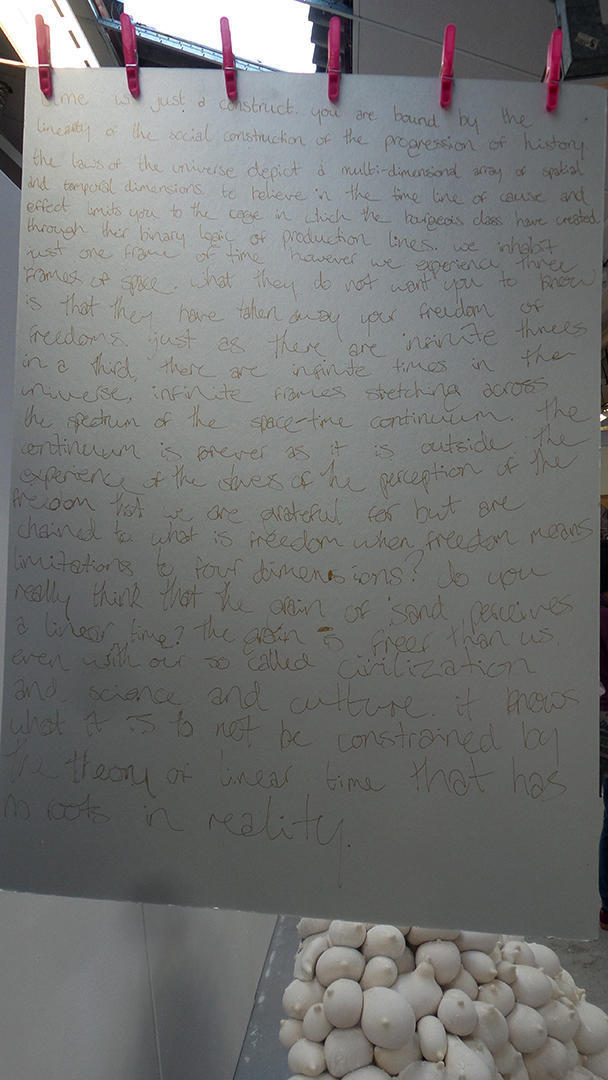 time is just a construct. you are bound by the
linearity of the social construction of the progression of history
the laws of the universe depict a multi-dimensional array of spatial
and temporal dimensions. to believe in the time line of cause and
effect limits you to the cage in which the bourgeois class have created
through their binary logic of production lines. we inhabit
just one frame of time however we experience three
frames of space. what they do not want you to know
is that they have taken away your freedom of
freedoms. just as there are infinite threes
in a third, there are infinite times in the
universe, infinite frames stretching across
the spectrum of the space-time continuum. the
continuum is forever as it is outside the
experience of the slaves of the perception of the
freedom that we are grateful for but are
chained to. what is freedom when freedom means
limitations to four dimensions? do you
really think that the grain of sand perceives
a linear time? the grain is freer than us.
even with our so called civilization
and science and culture. it knows
what it is to not be constrained by
the theory of linear time that has
no roots in reality.